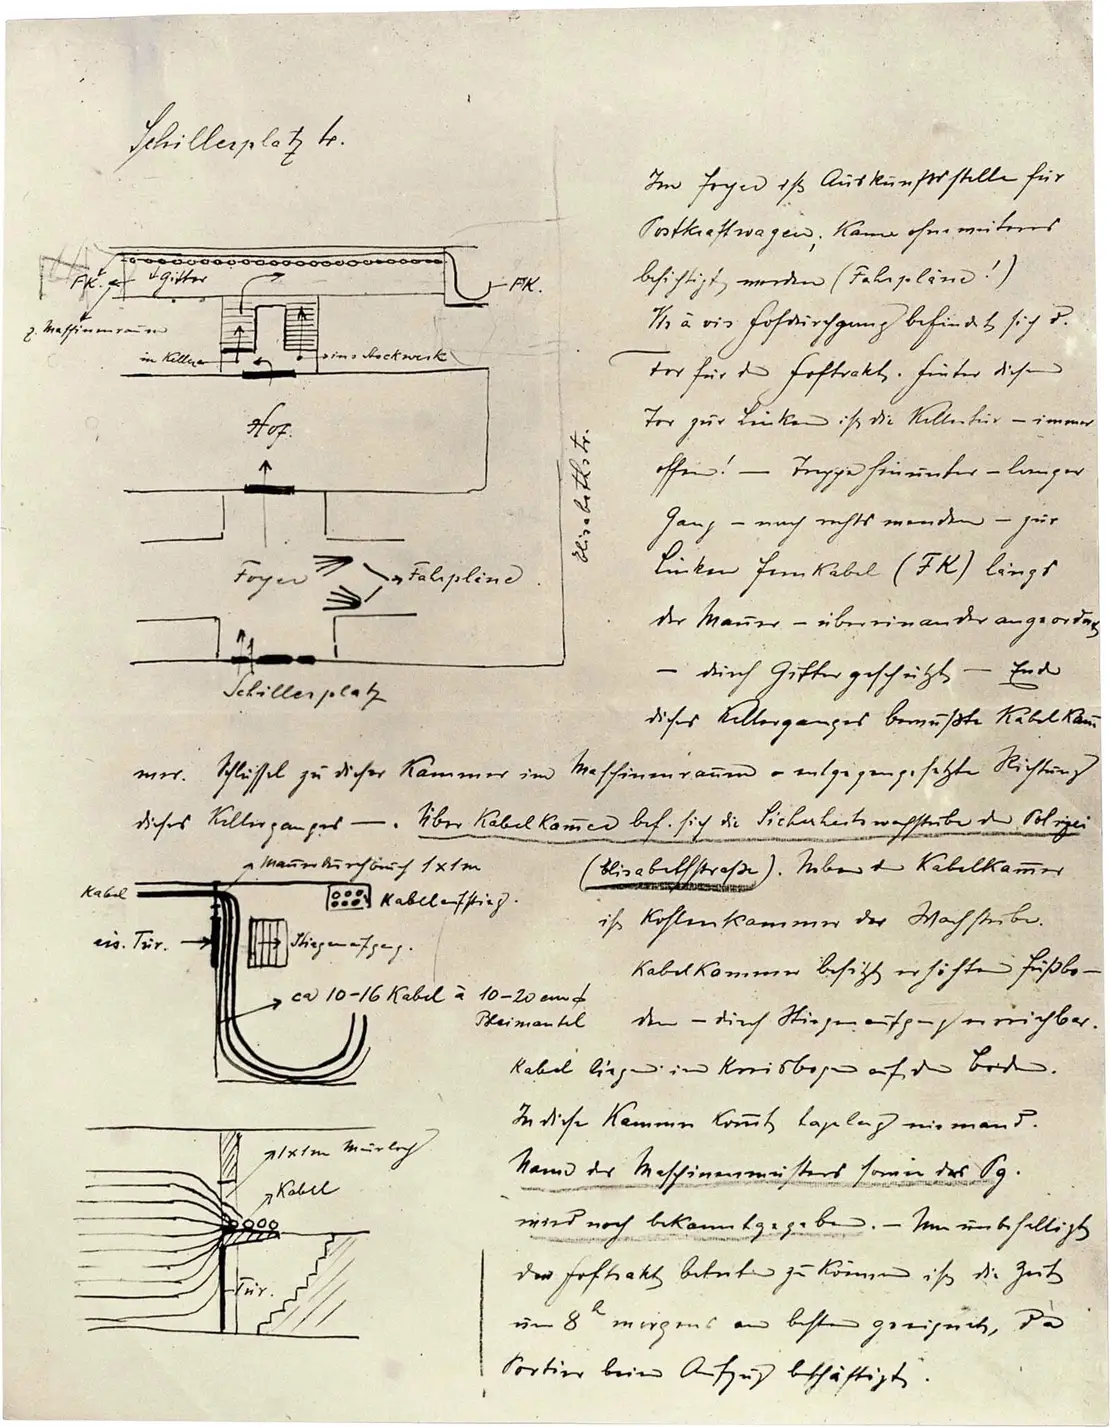 Schillerplatz 4.
Im Foyer ist Auskunftsstelle für
Postkraftwagen; kann ohne weiteres
besichtigt werden (Fahrpläne!)
Vis à vis Hofdurchgang befindet sich d.
Tor für d Hoftrakt. Hinter diesem
Tor zur Linken ist die Kellertür – immer
offen! — Treppe hinunter – langer
Gang – nach rechts wenden – zur
Linken Fernkabel (FK) längs
der Mauer – übereinander angeordnet
– durch Gitter geschützt – Ende
dieses Kellerganges bewußte Kabelkam
mer. Schlüssel zu dieser Kammer im Maschinenraum – entgegengesetzte Richtung
dieses Kellerganges —. Über Kabelkammer bef. sich die Sicherheitswachstube der Polizei
(Elisabethstraße). Neben der Kabelkammer
ist Kohlenkammer der Wachstube.
Kabelkammer besitzt erhöhten Fußbo–
den – durch Stiegenaufgang erreichbar.
Kabel liegen im Kreisbogen auf dem Boden.
In diese Kammer kommt tagelang niemand.
Name des Maschinenmeisters sowie des Pg.
wird noch bekanntgegeben. – Um unbehelligt
den Hoftrakt betreten zu können ist die Zeit
um 8 h morgens am besten geeignet, da
Portier beim Aufzug beschäftigt.
FK.
Gitter
FK.
z. Maschinenraum
in Keller
ins Stockwerk
Hof.
Elisabethstr.
Foyer
Fahrpläne
Schillerplatz
Mauerdurchbruch 1x1m
Kabel
Kabelaufstieg.
eis. Tür.
Stiegenaufgang.
ca 10–16 Kabel à 10–20 cm ϕ
Bleimantel
1x1m Mauerloch
Kabel
Tür.